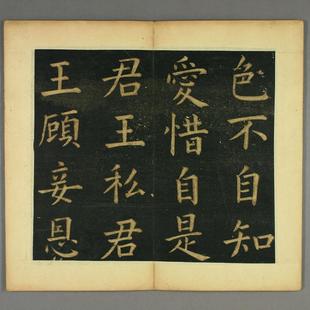 色不自知
愛惜自是
君王私君
王顧妾恩